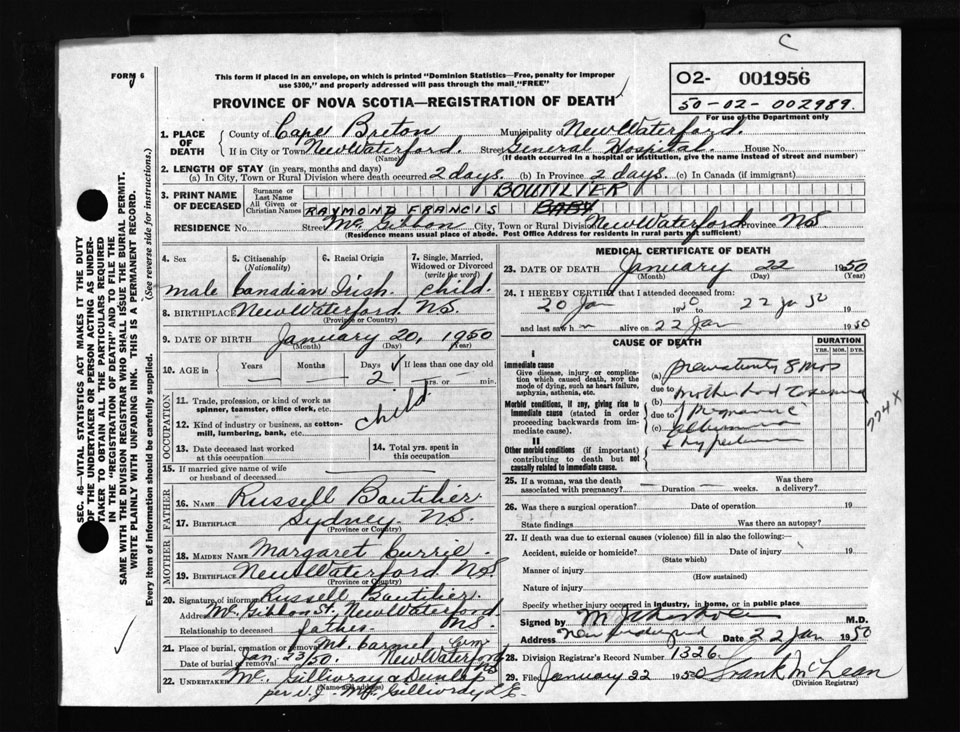 C
FORM 6
This form if placed in an envelope, on which is printed "Dominion Statistics—Free, penalty for improper
use $300," and properly addressed will pass through the mail "FREE"
O2- 001956
50-02-002989.
For use of the Department only
PROVINCE OF NOVA SCOTIA—REGISTRATION OF DEATH
1. PLACE OF DEATH
County of Cape Breton Municipality of New Waterford.
If in City or Town New Waterford. Street General Hospital. House No.
(Name) (If death occurred in a hospital or institution, give the name instead of street and number)
2. LENGTH OF STAY (in years, months and days)
(a) In City, Town or Rural Division where death occurred 2 days. (b) In Province 2 days. (c) In Canada (if immigrant)
3. PRINT NAME OF DECEASED
Surname or Last Name BOUTILIER
All Given or Christian Names RAYMOND FRANCIS BABY
RESIDENCE No. Street Mc Gibbon City, Town or Division New Waterford Province NS
(Residence means usual place of abode. Post Office Address for residents in rural parts not sufficient)
4. Sex 5. Citizenship (Nationality) 6. Racial Origin 7. Single, Married, Widowed or Divorced (write the word)
male Canadian Irish. child.
8. BIRTHPLACE New Waterford NS.
(Province or Country)
9. DATE OF BIRTH January 20, 1950
(Month) (Day) (Year)
10. AGE in Years Months Days If less than one day old
— — 2 hrs. or min.
OCCUPATION
11. Trade, profession, or kind of work as spinner, teamster, office clerk, etc. child.
12. Kind of industry or business, as cotton-mill, lumbering, bank, etc.
13. Date deceased last worked at this occupation
14. Total yrs. spent in this occupation
15. If married give name of wife or husband of deceased
FATHER
16. NAME Russell Boutilier.
17. BIRTHPLACE Sydney NS.
(Province or Country)
MOTHER
18. MAIDEN NAME Margaret Currie.
19. BIRTHPLACE New Waterford NS.
(Province or Country)
20. Signature of informant Russell Boutilier.
Address Mc Gibbon St. New Waterford NS.
Relationship to deceased father
21. Place of burial, cremation or removal Mt. Carmel Cem
Date of burial or removal Jan. 23/50. New Waterford NS
22. UNDERTAKER Mc Gillivray & Dunlap
(Name and address)
per Mc Gillivray L.E.
MEDICAL CERTIFICATE OF DEATH
23. DATE OF DEATH January 22 1950
(Month) (Day) (Year)
24. I HEREBY CERTIFY that I attended deceased from:
20 Jan 1950 to 22 Ja 50
and last saw him alive on 22 Jan 1950
CAUSE OF DEATH
DURATION
YRS. MOS. DYS.
I
Immediate cause
Give disease, injury or complication which caused death, NOT the mode of dying, such as heart failure, asphyxia, asthenia, etc.
(a) Prematurity 8 mos
due to
Morbid conditions, if any, giving rise to immediate cause (stated in order proceeding backwards from immediate cause).
(b) mother had
due to
(c) albuminuria
II
Other morbid conditions (if important) contributing to death but not causally related to immediate cause.
774X
25. If a woman, was the death associated with pregnancy? Duration weeks. Was there a delivery?
26. Was there a surgical operation? Date of operation 19
State findings Was there an autopsy?
27. If death was due to external causes (violence) fill in also the following:—
Accident, suicide or homicide? Date of injury 19
(State which)
Manner of injury
(How sustained)
Nature of injury
Specify whether injury occurred in industry, in home, or in public place
Signed by M.D.
Address New Waterford Date 22 Jan 1950
28. Division Registrar's Record Number 1326.
29. Filed January 22 1950 Frank McLean
(Division Registrar)
SEC. 46—VITAL STATISTICS ACT MAKES IT THE DUTY
OF THE UNDERTAKER OR PERSON ACTING AS UNDERTAKER TO OBTAIN ALL THE PARTICULARS REQUIRED
IN THE "REGISTRATION OF DEATH" AND TO FILE THE
SAME WITH THE DIVISION REGISTRAR WHO SHALL ISSUE THE BURIAL PERMIT.
WRITE PLAINLY WITH UNFADING INK. THIS IS A PERMANENT RECORD.
Every item of information should be carefully supplied. (See reverse side for instructions.)